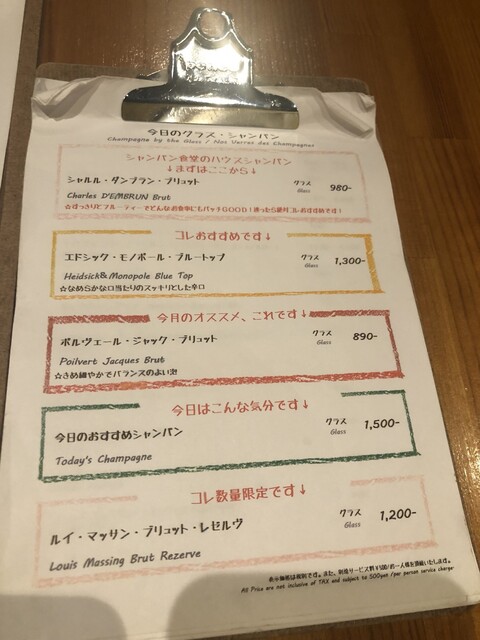 今日のグラス・シャンパン
Champagne by the Glass / Nos Verres des Champagner
シャンパン食堂のハウスシャンパン
↓まずはここから↓
シャルル・ダンブラン・ブリュット グラス 980-
Glass
Charles D'EMBRUN Brut
☆すっきりとフルーティーでどんなお食事にもバッチGOOD！迷ったら絶対コレおすすめです！
コレおすすめです↓
エドシック・モノポール・ブルートップ グラス 1,300-
Glass
Heidsick&Monopole Blue Top
☆なめらかな口当たりのスッキリとした辛口
今月のオススメ、これです↓
ポルヴェール・ジャック・ブリュット グラス 890-
Glass
Poilvert Jacques Brut
☆きめ細やかでバランスのよい泡
今日はこんな気分です↓
今日のおすすめシャンパン グラス 1,500-
Glass
Today's Champagne
コレ数量限定です↓
ルイ・マッサン・ブリュット・レゼルヴ グラス 1,200-
Glass
Louis Massing Brut Rezerve
表示価格は税別です。また、別途サービス料￥500/お一人様を頂戴いたします。
All Price are not inclusive of TAX and subject to 500yen /per person service charge